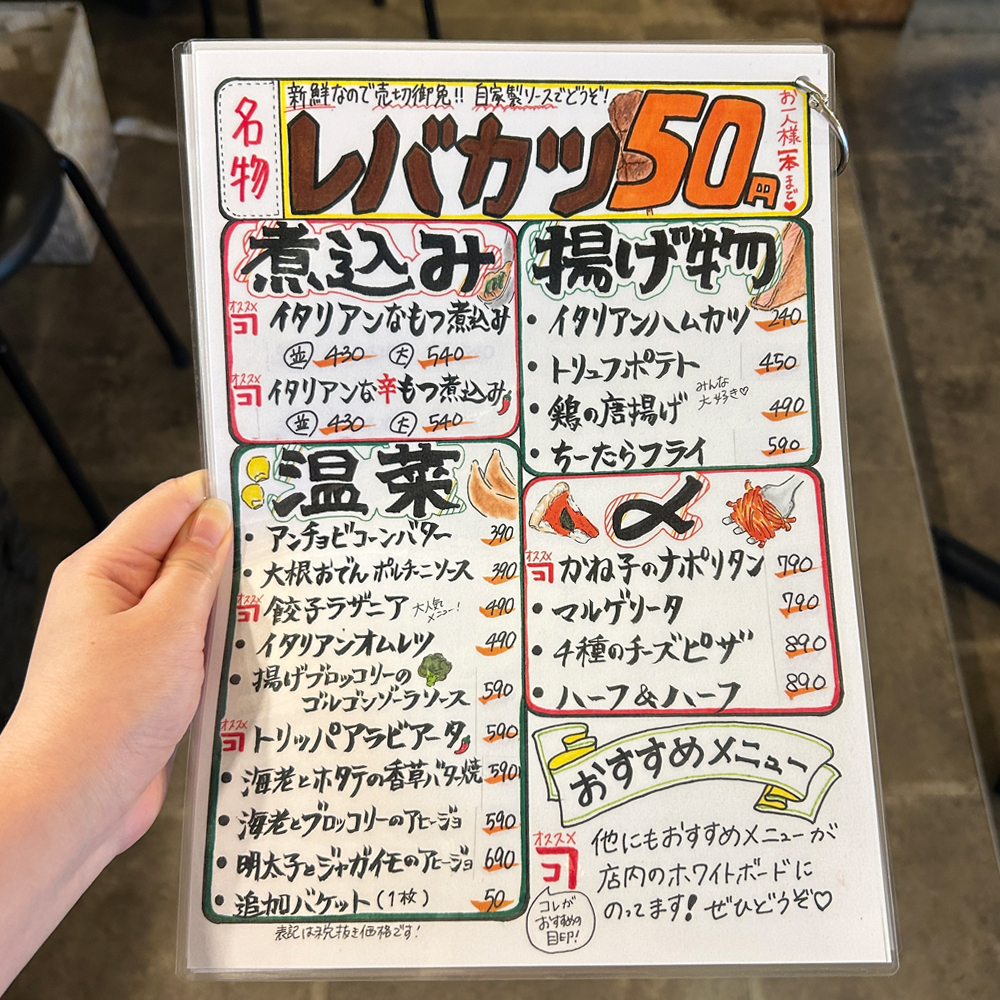 名物
新鮮なので売切御免!! 自家製ソースでどうぞ!
レバカツ 50円
お一人様一本まで♥
煮込み
オススメ
コ イタリアンなもつ煮込み
並 430 大 540
オススメ
コ イタリアンな辛もつ煮込み
並 430 大 540
温菜
・アンチョビコーンバター 390
・大根おでんポルチーニソース 390
オススメ
コ 餃子ラザニア 大人気メニュー! 490
・イタリアンオムレツ 490
・揚げブロッコリーの
ゴルゴンゾーラソース 590
オススメ
コ トリッパアラビアータ 590
・海老とホタテの香草バター焼 590
・海老とブロッコリーのアヒージョ 590
・明太子とジャガイモのアヒージョ 690
・追加バケット(1枚) 50
表記は税抜き価格です!
揚げ物
・イタリアンハムカツ 240
・トリュフポテト 450
みんな
大好き♡
・鶏の唐揚げ 490
・ちーたらフライ 590
〆
オススメ
コ かね子のナポリタン 790
・マルゲリータ 790
・4種のチーズピザ 890
・ハーフ&ハーフ 890
おすすめメニュー
オススメ
コ
コレが
おすすめの
目印!
他にもおすすめメニューが
店内のホワイトボードに
のってます!ぜひどうぞ♡